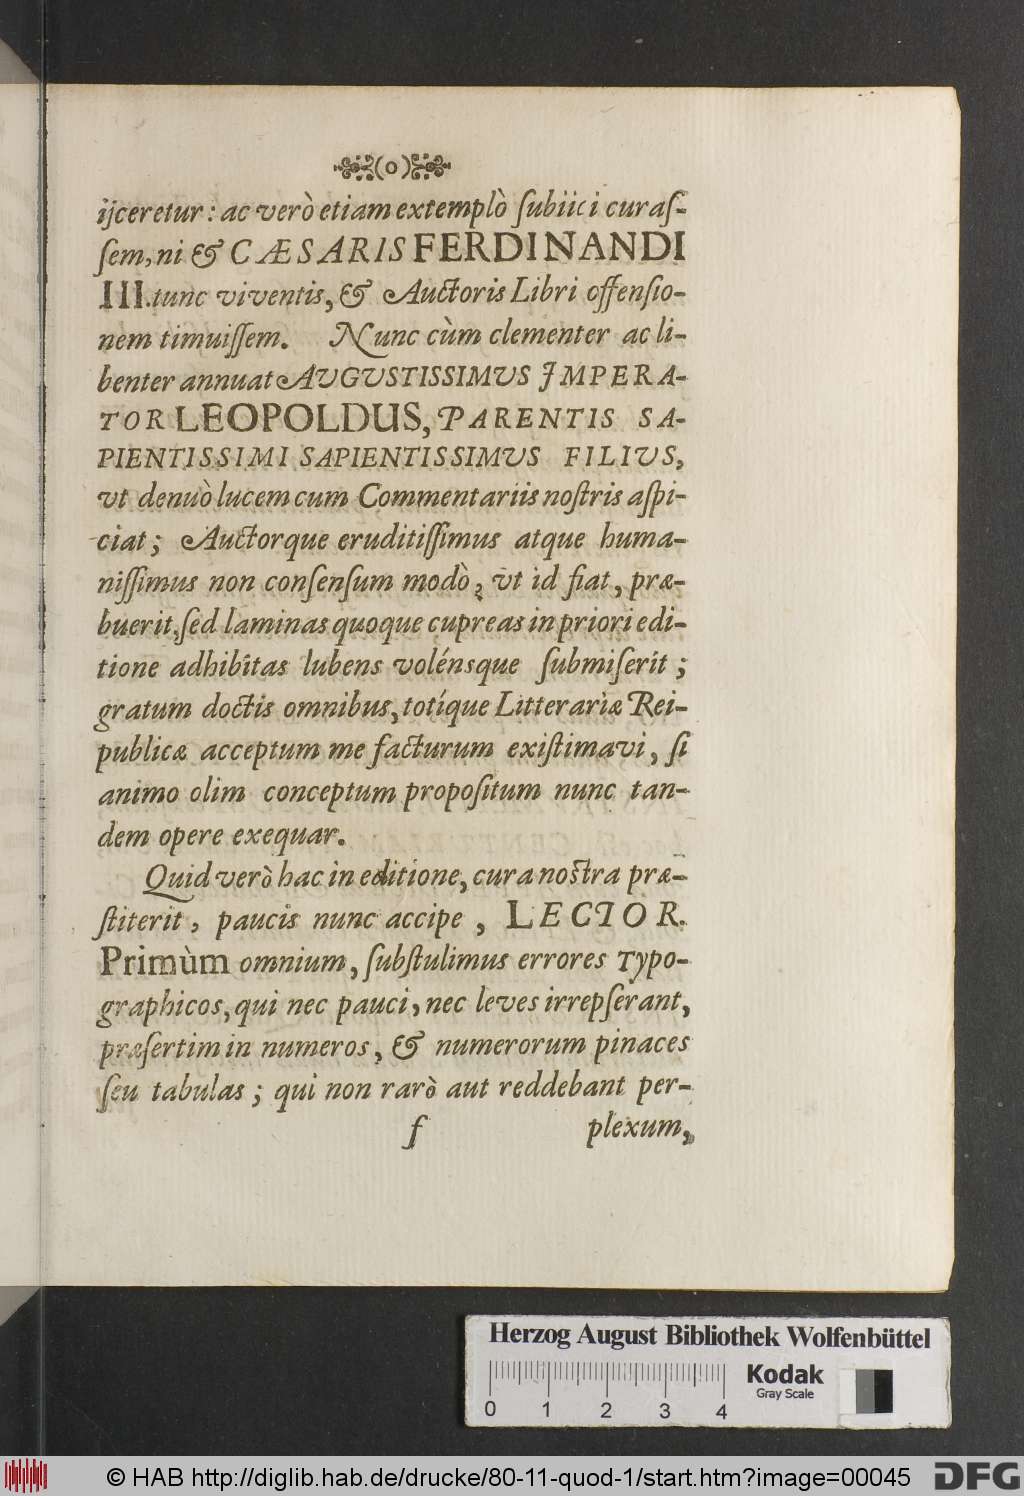 (o)
ijceretur: ac verò etiam extemplò ſubiici curaſ-
ſem, ni & CÆSARIS FERDINANDI
III. tunc viventis, & Auctoris Libri offenſio-
nem timuiſſem. Nunc cùm clementer ac li-
benter annuat AUGUSTISSIMUS IMPERA-
TOR LEOPOLDUS, PARENTIS SA-
PIENTISSIMI SAPIENTISSIMUS FILIUS,
vt denuò lucem cum Commentariis noſtris aſpi-
ciat; Auctorque eruditiſſimus atque huma-
niſſimus non conſenſum modò, vt id fiat, præ-
buerit, ſed laminas quoque cupreas in priori edi-
tione adhibitas lubens volénsque ſubmiſerit;
gratum doctis omnibus, totíque Litterariæ Rei-
publicæ acceptum me facturum exiſtimavi, ſi
animo olim conceptum propoſitum nunc tan-
dem opere exequar.
Quid verò hac in editione, cura noſtra præ-
ſtiterit, paucis nunc accipe, LECTOR.
Primùm omnium, ſubſtulimus errores Typo-
graphicos, qui nec pauci, nec leves irrepſerant,
præſertim in numeros, & numerorum pinaces
ſeu tabulas; qui non rarò aut reddebant per-
f plexum,
Herzog August Bibliothek Wolfenbüttel
Kodak
Gray Scale
0 1 2 3 4
© HAB http://diglib.hab.de/drucke/80-11-quod-1/start.htm?image=00045
DFG